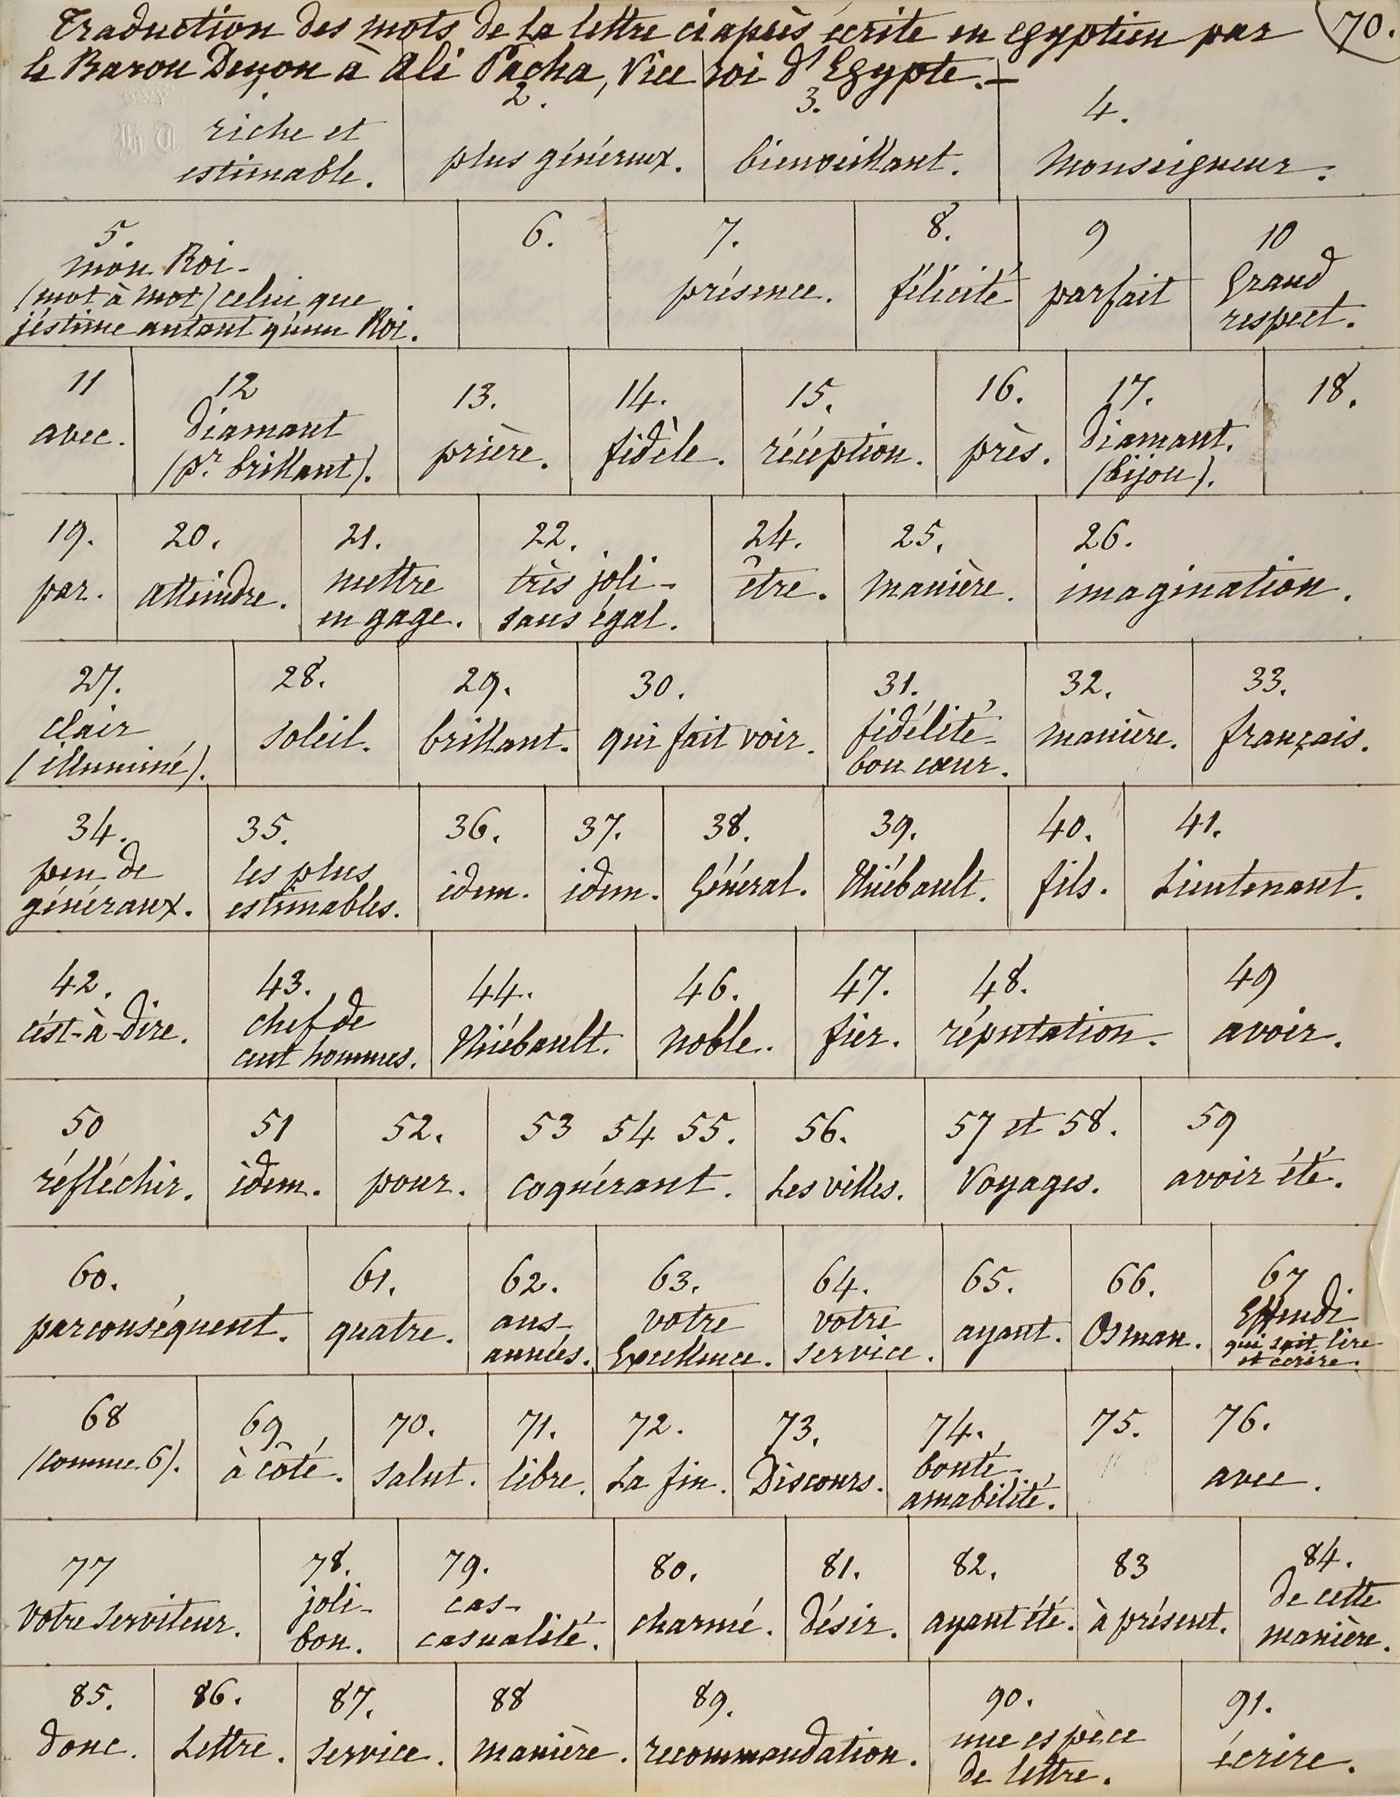 Traduction des mots de la lettre ci après écrite en egyptien par 70.
le Baron Denon à Ali Pacha, Vice roi d'Egypte.—
riche et
estimable.
2.
plus généreux.
3.
bienveillant.
4.
Monseigneur.
5.
mon Roi-
(mot à mot) celui que
j'éstime autant qu'un Roi.
6.
7.
présence.
8.
félicité
9
parfait
10
Grand
respect.
11
avec.
12
diamant
(pr brillant).
13.
prière.
14.
fidèle.
15.
réception.
16.
près.
17.
diamant.
(bijou).
18.
19.
par.
20.
atteindre.
21.
mettre
en gage.
22.
très joli-
sans égal.
24.
être.
25.
manière.
26.
imagination.
27.
clair
(illuminé).
28.
soleil.
29.
brillant.
30.
qui fait voir.
31.
fidélité-
bon cœur.
32.
manière.
33.
français.
34.
peu de
généraux.
35.
les plus
estimables.
36.
idem.
37.
idem.
38.
Général.
39.
Thiébault.
40.
fils.
41.
Lieutenant.
42.
c'ést-à-dire.
43.
chef de
cent hommes.
44.
Thiébault.
46.
noble.
47.
fier.
48.
réputation.
49
avoir.
50
réfléchir.
51
idem.
52.
pour.
53 54 55.
coquérant.
56.
Les villes.
57 et 58.
Voyages.
59
avoir été.
60.
parconséquent.
61.
quatre.
62.
ans-
années.
63.
votre
Excellence.
64.
votre
service.
65.
ayant.
66.
Osman.
67
Effendi
qui sait lire
et ecrire.
68
(comme 6).
69
à côté.
70.
salut.
71.
libre.
72.
La fin.
73.
Discours.
74.
bonté-
amabilité.
75.
76.
avec.
77
votre serviteur.
78.
joli-
bon.
79.
cas-
casualité.
80.
charmé.
81.
désir.
82.
ayant été.
83
à présent.
84.
de cette
manière.
85.
donc.
86.
Lettre.
87.
service.
88
manière.
89.
recommandation.
90.
une espèce
de lettre.
91.
écrire.